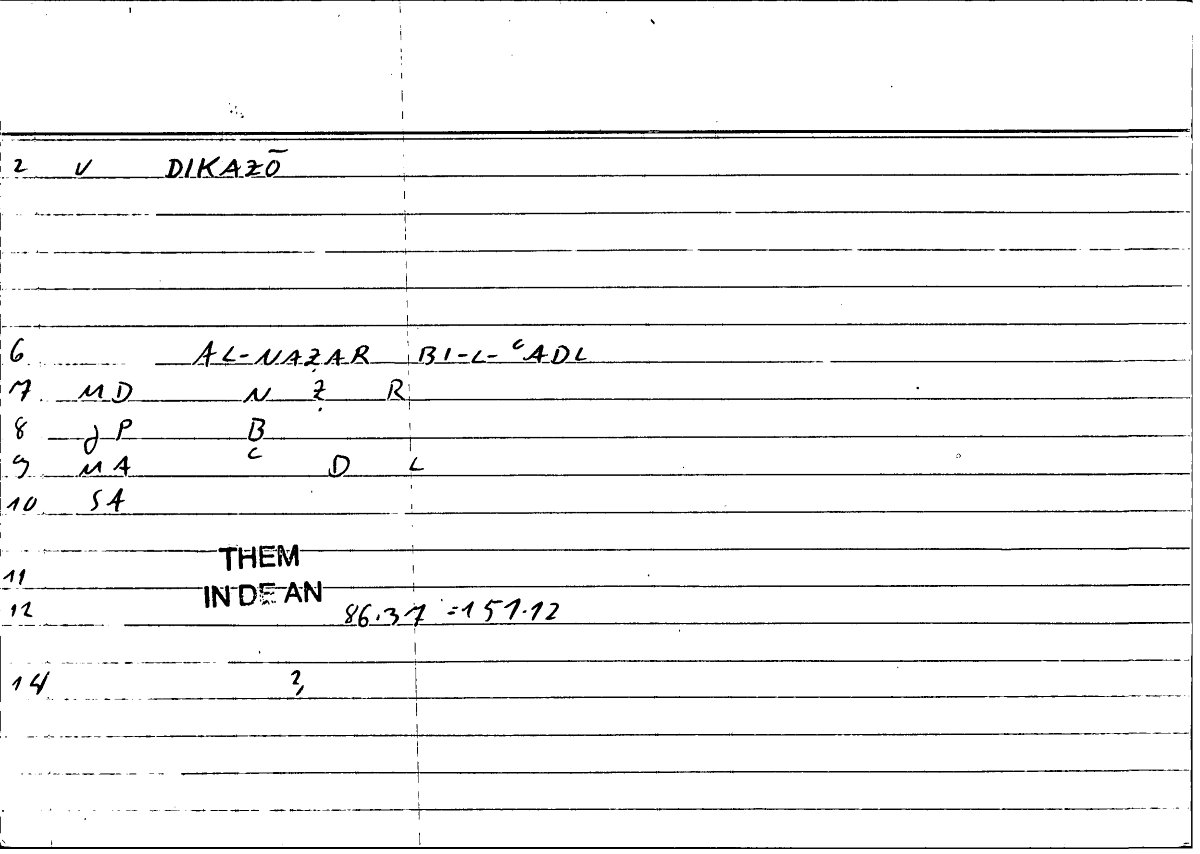 2 V DIKAZŌ
6 AL-NAẒAR BI-L-ʿADL
7 MD N Ẓ R
8 JP B
9 MA ʿ D L
10 SA
THEM
11
IN DE AN
12 86.37 =151.12
14 2,